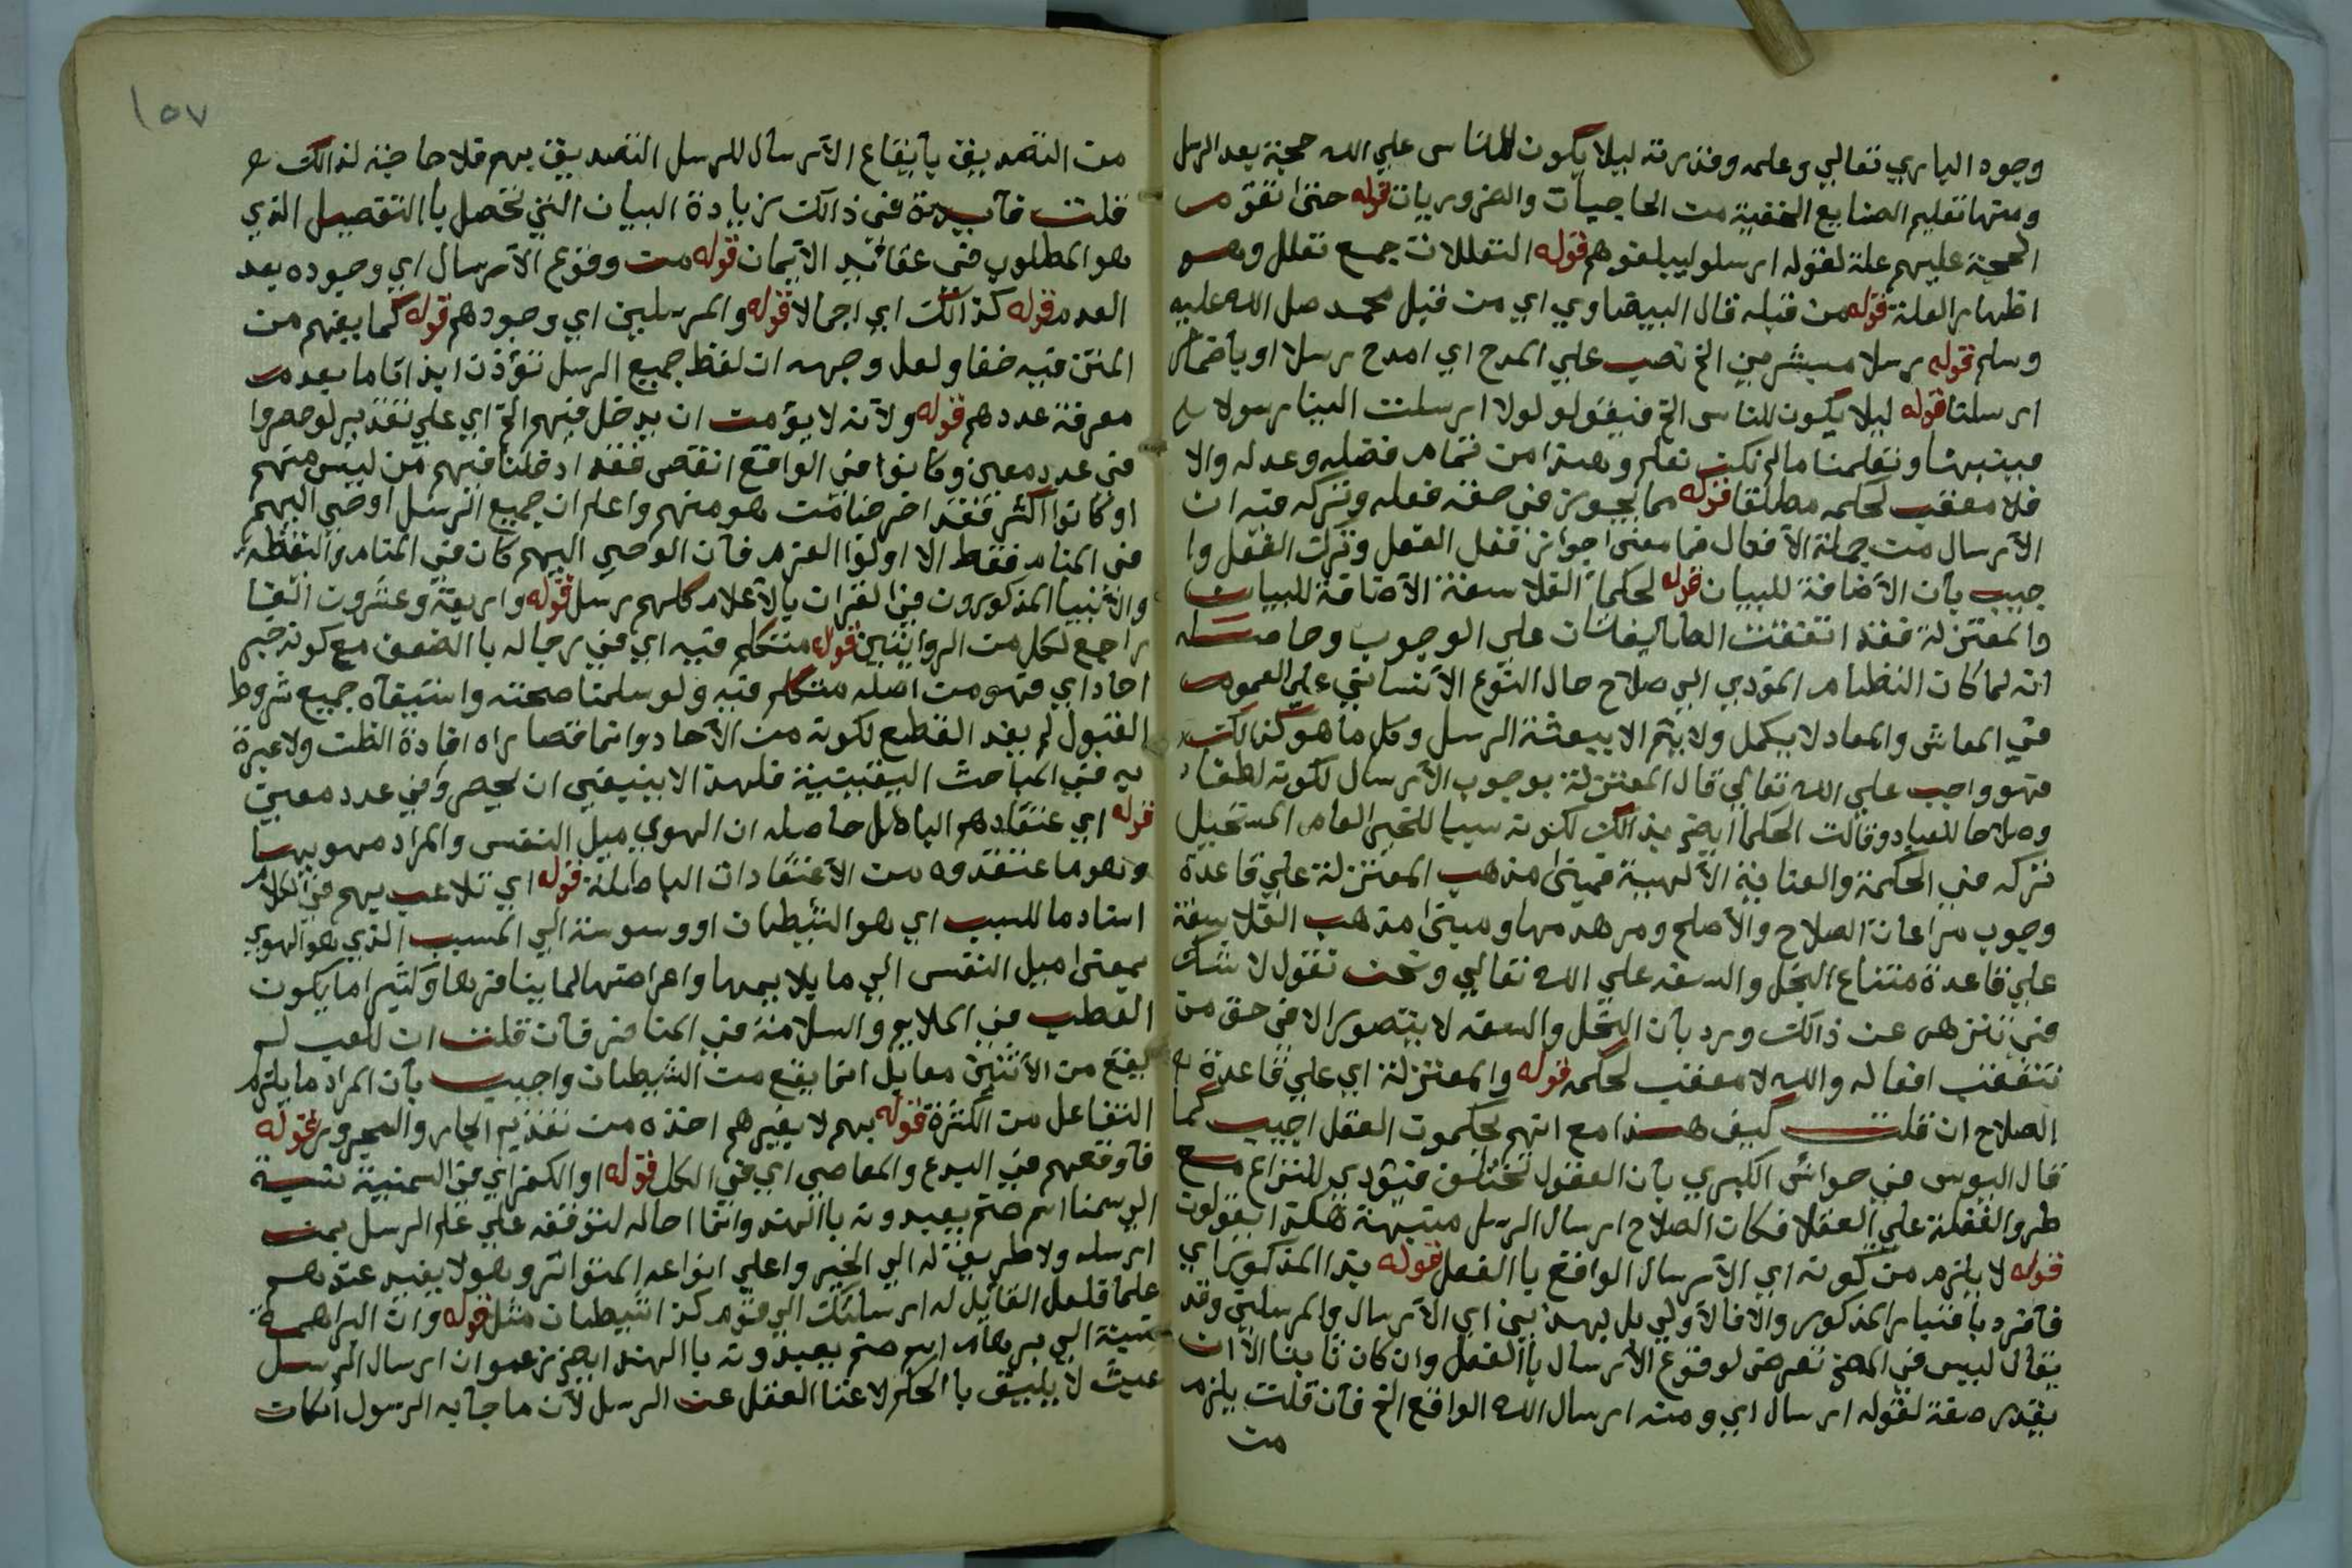 وجود الباري تعالي وعلمه وقدرته ليلا يكون للناس علي الله حجة بعد الرسل
ومنها تعليم الصنايع الخفية من الحاجيات والضروريات قوله حتى تقوم
الحجة عليهم علة لقوله ارسلو ليبلغوهم قوله التعللات جمع تعلل وهو
اظهار العلة قوله من قبله قال البيضاوي اي من قبل محمد صل الله عليه
وسلم قوله رسلا مبشرين الخ نصب علي المدح اي امدح رسلا او باضمار
ارسلنا قوله ليلا يكون للناس الخ فيقولو لولا ارسلت الينا رسولا
فينبهنا وتعلمنا ما لم نكن نعلم وهذا من تمام فضله وعدله والا
فلا معقب لحكمه مطلقا قوله مما يجوز في حقه فعله وتركه فيه ان
الأرسال من جملة الأفعال فما معنى جواز فعل الفعل وترك الفعل وا
جيب بأن الأضافة للبيان قوله لحكماً الفلاسفة الأضافة للبيان
والمعتزلة فقد اتفقت الطايفتان على الوجوب وحاصله
انه لما كان النظام المؤدي الي صلاح حال النوع الأنساني علي العموم
في المعاش والمعاد لا يكمل ولا يتم الا ببعثة الرسل وكل ما هو كذالك
فهو واجب علي الله تعالي قال المعتزلة بوجوب الأرسال لكونه لطفا
وصلاحا للعباد وقالت الحكما ايضا بذالك لكونه سببا للخير العام المستحيل
تركه في الحكمة والعناية الألهية فمبنى مذهب المعتزلة علي قاعدة
وجوب مراعات الصلاح والأصلح ومر هدمها ومبنى مذهب الفلاسفة
علي قاعدة امتناع البخل والسفه علي الله تعالي ونحن نقول لا شك
في تنزهه عن ذالك ورد بأن البخل والسفه لا يتصور الا في حق من
تتعقب افعاله والله لا معقب لحكمه قوله والمعتزلة اي علي قاعدة
الصلاح ان قلت كيف هذا مع انهم يحكمون العقل اجيب كما
قال اليوسي في حواشى الكبري بأن العقول تختلف فيؤدي للنزاع مع
طرو الغفلة علي العقلا فكان الصلاح ارسال الرسل منبهة هكذا يقولون
قوله لا يلزم من كونه اي الأرسال الواقع با الفعل قوله بذا المذكور اي
فأفرد بأعتبار المذكور والا فالأولي بل بهذين اي الأرسال والمرسلين وقد
يقال ليس في المص تعرض لوقوع الأرسال با الفعل وان كان ثابتا الا ان
يقدر صفة لقوله ارسال اي ومنه ارسال الله الواقع الخ فأن قلت يلزم
من
١٥٧
من التصديق بأيقاع الأرسال للرسل التصديق بهم فلا حاجة لذالك
قلت فأيدة في ذالك زيادة البيان التي تحصل با التفصيل الذي
هو المطلوب في عقائد الأيمان قوله من وقوع الأرسال اي وجوده بعد
العدم قوله كذالك اي اجمالا قوله والمرسلين اي وجودهم قوله كما يفهم من
المتن فيه خفا ولعل وجهه ان لفظ جميع الرسل تؤذن ايذانا ما بعدم
معرفة عددهم قوله ولأنه لا يؤمن ان يدخل فيهم الخ اي علي تقدير لو حصروا
في عدد معين وكانوا في الواقع انقص فقد ادخلنا فيهم من ليس منهم
او كانوا اكثر فقد اخرجنا من هو منهم واعلم ان جميع الرسل اوحي اليهم
في المنام فقط الا اولوا العزم فأن الوحي اليهم كان في المنام واليقظه
والأنبيا المذكورون في القران بالأعلام كلهم رسل قوله واربعة وعشرون الفا
راجع لكل من الروايتين قوله متكلم فيه اي في رجاله با الضعف مع كونه خبر
احاد اي فهو من اصله متكلم فيه ولو سلمنا صحته واستيفاه جميع شروط
القبول لم يفد القطع لكونه من الأحاد وانما قصاراه افادة الظن ولا عبرة
به في المباحث اليقينية فلهذا لا ينبغي ان يحصروا في عدد معين
قوله اي عتقادهم الباطل حاصله ان الهوي ميل النفس والمراد مهويها
وهو ما اعتقدوه من الأعتقادات الباطلة قوله اي تلاعب بهم في الكلام
اسناد ما للسبب اي هو الشيطان او وسوسة الي المسبب الذي هو الهوي
بمعنى ميل النفس الي ما يلايمها واعراضها لما ينافرها وكثيرا ما يكون
العطب في الملايم والسلامة في المنافر فأن قلت ان اللعب لم
يقع من الأثنين معا بل انما يقع من الشيطان واجيب بأن المراد ما يلزم
التفاعل من الكثرة قوله بهم لا بغيرهم اخذه من تقديم الجار والمجرور قوله
فأوقعهم في البدع والمعاصي اي في الكل قوله او الكفر اي في السمنية نسبة
الي سمنا اسم صنم يعبدونه با الهند وانما احاله لتوقفه علي علم الرسل بمن
ارسله ولا طريق له الي الخبر واعلي انواعه المتواتر وهو لا يفيد عندهم
علما فلعل القايل له ارسلتك الي قوم كذا شيطان مثل قوله وان البراهمة
نسبة الي برهام اسم صنم يعبدونه با الهند ايضا زعموا ان ارسال الرسل
عبث لا يليق با الحكم لاغنا العقل عن الرسل لأن ما جا به الرسول انكان